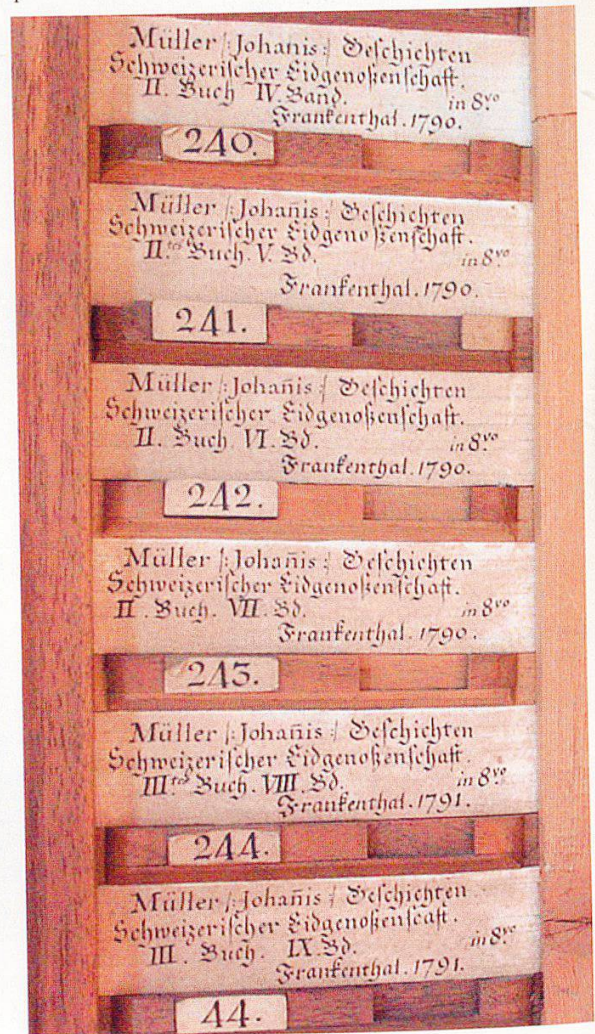 Müller /: Johan̄is :/ Geschichten
Schweizerischer Eidgenoßenschaft.
II. Buch IV. Ban̄d. in 8.vo
Frankenthal. 1790.
240.
Müller /: Johan̄is :/ Geschichten
Schweizerischer Eidgenoßenschaft.
II.tes Buch. V. Bd. in 8.vo
Frankenthal. 1790.
241.
Müller /: Johan̄is :/ Geschichten
Schweizerischer Eidgenoßenschaft.
II. Buch. VI. Bd. in 8.vo
Frankenthal. 1790.
242.
Müller /: Johan̄is :/ Geschichten
Schweizerischer Eidgenoßenschaft.
II. Buch. VII. Bd. in 8.vo
Frankenthal. 1790.
243.
Müller /: Johan̄is :/ Geschichten
Schweizerischer Eidgenoßenschaft.
III.tes Buch. VIII. Bd. in 8.vo
Frankenthal. 1791.
244.
Müller /: Johan̄is :/ Geschichten
Schweizerischer Eidgenoßenscaft.
III. Buch. IX. Bd. in 8.vo
Frankenthal. 1791.
44.